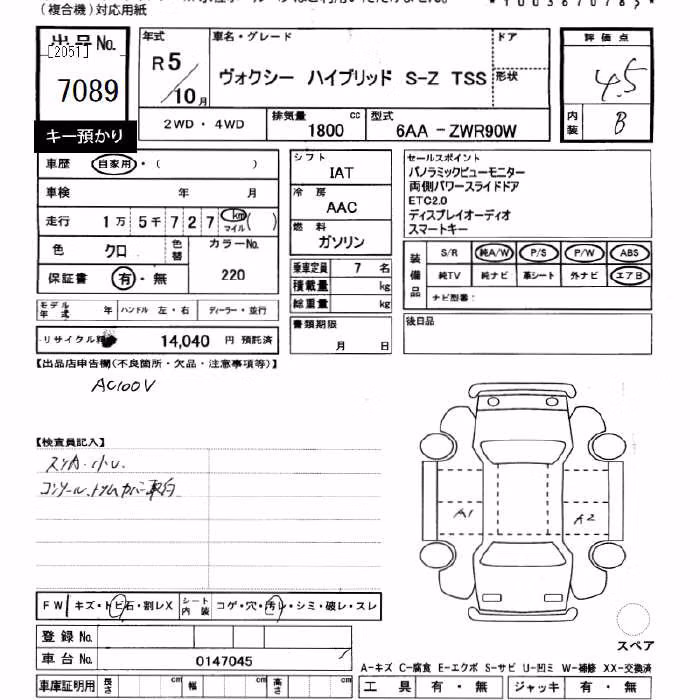 (複合機)対応用紙
出品No.
[2051]
7089
キー預かり
年式
R5/10月
車名・グレード
ヴォクシー ハイブリッド S-Z TSS
ドア
形状
2WD・4WD
排気量 cc
1800
型式
6AA-ZWR90W
評価点
4.5
内装
B
車歴 自家用・( )
車検 年 月
走行 1万 5千 7 2 7 km マイル ( )
色 クロ 色替 カラーNo.
保証書 有・無 220
モデル年式 年 ハンドル 左・右 ディーラー・並行
リサイクル 14,040 円 預託済
シフト
IAT
冷房
AAC
燃料
ガソリン
乗車定員 7 名
積載量 kg
総重量 kg
書類期限
月 日
セールスポイント
パノラミックビューモニター
両側パワースライドドア
ETC2.0
ディスプレイオーディオ
スマートキー
装備品
S/R 純A/W P/S P/W ABS
純TV 純ナビ 革シート 外ナビ エアB
ナビ型番:
後日品
【出品店申告欄(不良箇所・欠品・注意事項等)】
AC100V
【検査員記入】
スリキ小.
コンソール、トリムカバー車内
A1
A2
FW キズ・トビ石・割レX シート内装 コゲ・穴・汚レ・シミ・破レ・スレ
登録No.
車台No. 0147045
スペア
A-キズ C-腐食 E-エクボ S-サビ U-凹ミ W-補修 XX-交換済
車庫証明用 長さ cm 幅 cm 高さ cm
工具 有・無 ジャッキ 有・無